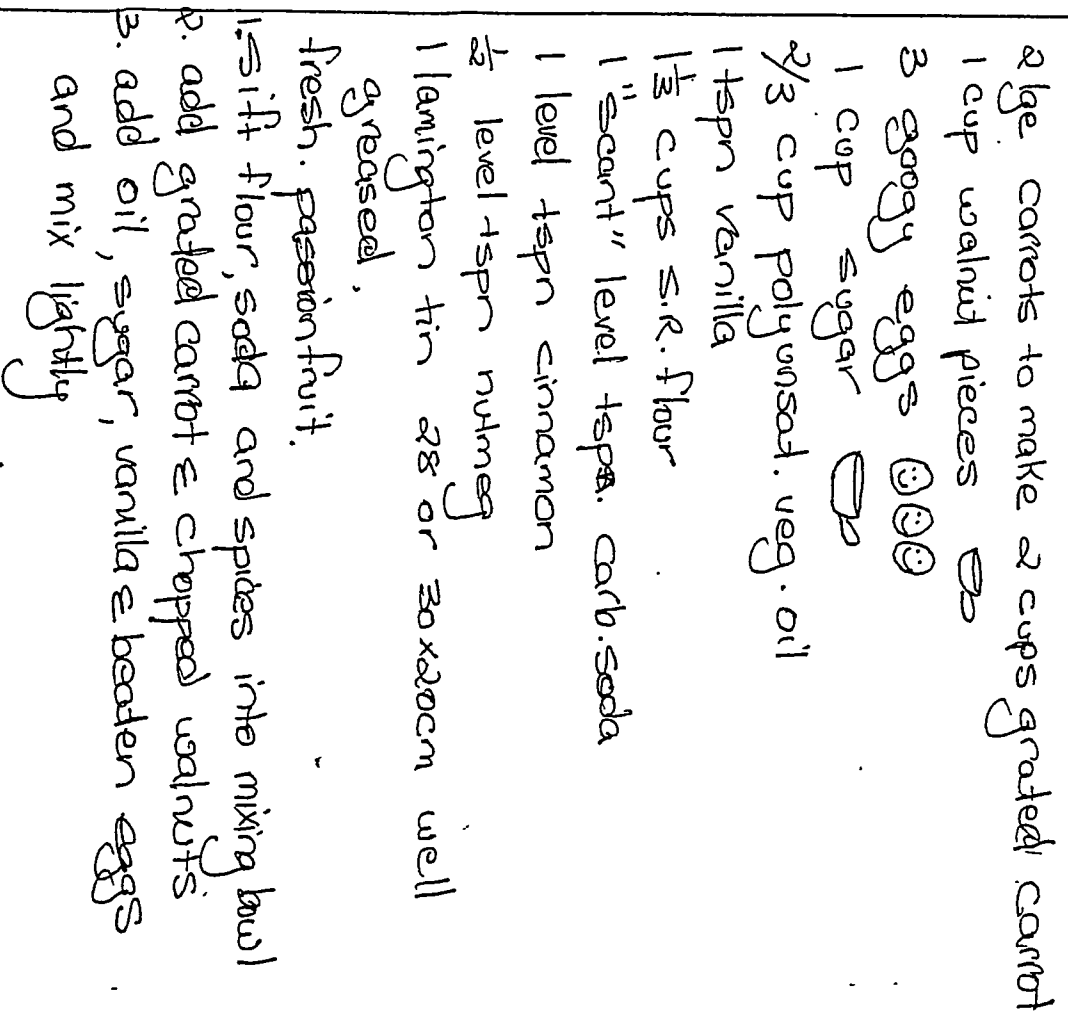 2 lge. carrots to make 2 cups grated carrot
1 cup walnut pieces
3 googy eggs
1 cup sugar
2/3 cup polyunsat. veg. oil
1 tspn vanilla
1 1/3 cups S.R. flour
1 "scant" level tspn. carb. soda
1 level tspn cinnamon
1/2 level tspn nutmeg
1 lamington tin 28 or 30x20cm well
greased.
fresh. passionfruit.
1. Sift flour, soda and spices into mixing bowl
2. add grated carrot & chopped walnuts
3. add oil, sugar, vanilla & beaten eggs
and mix lightly